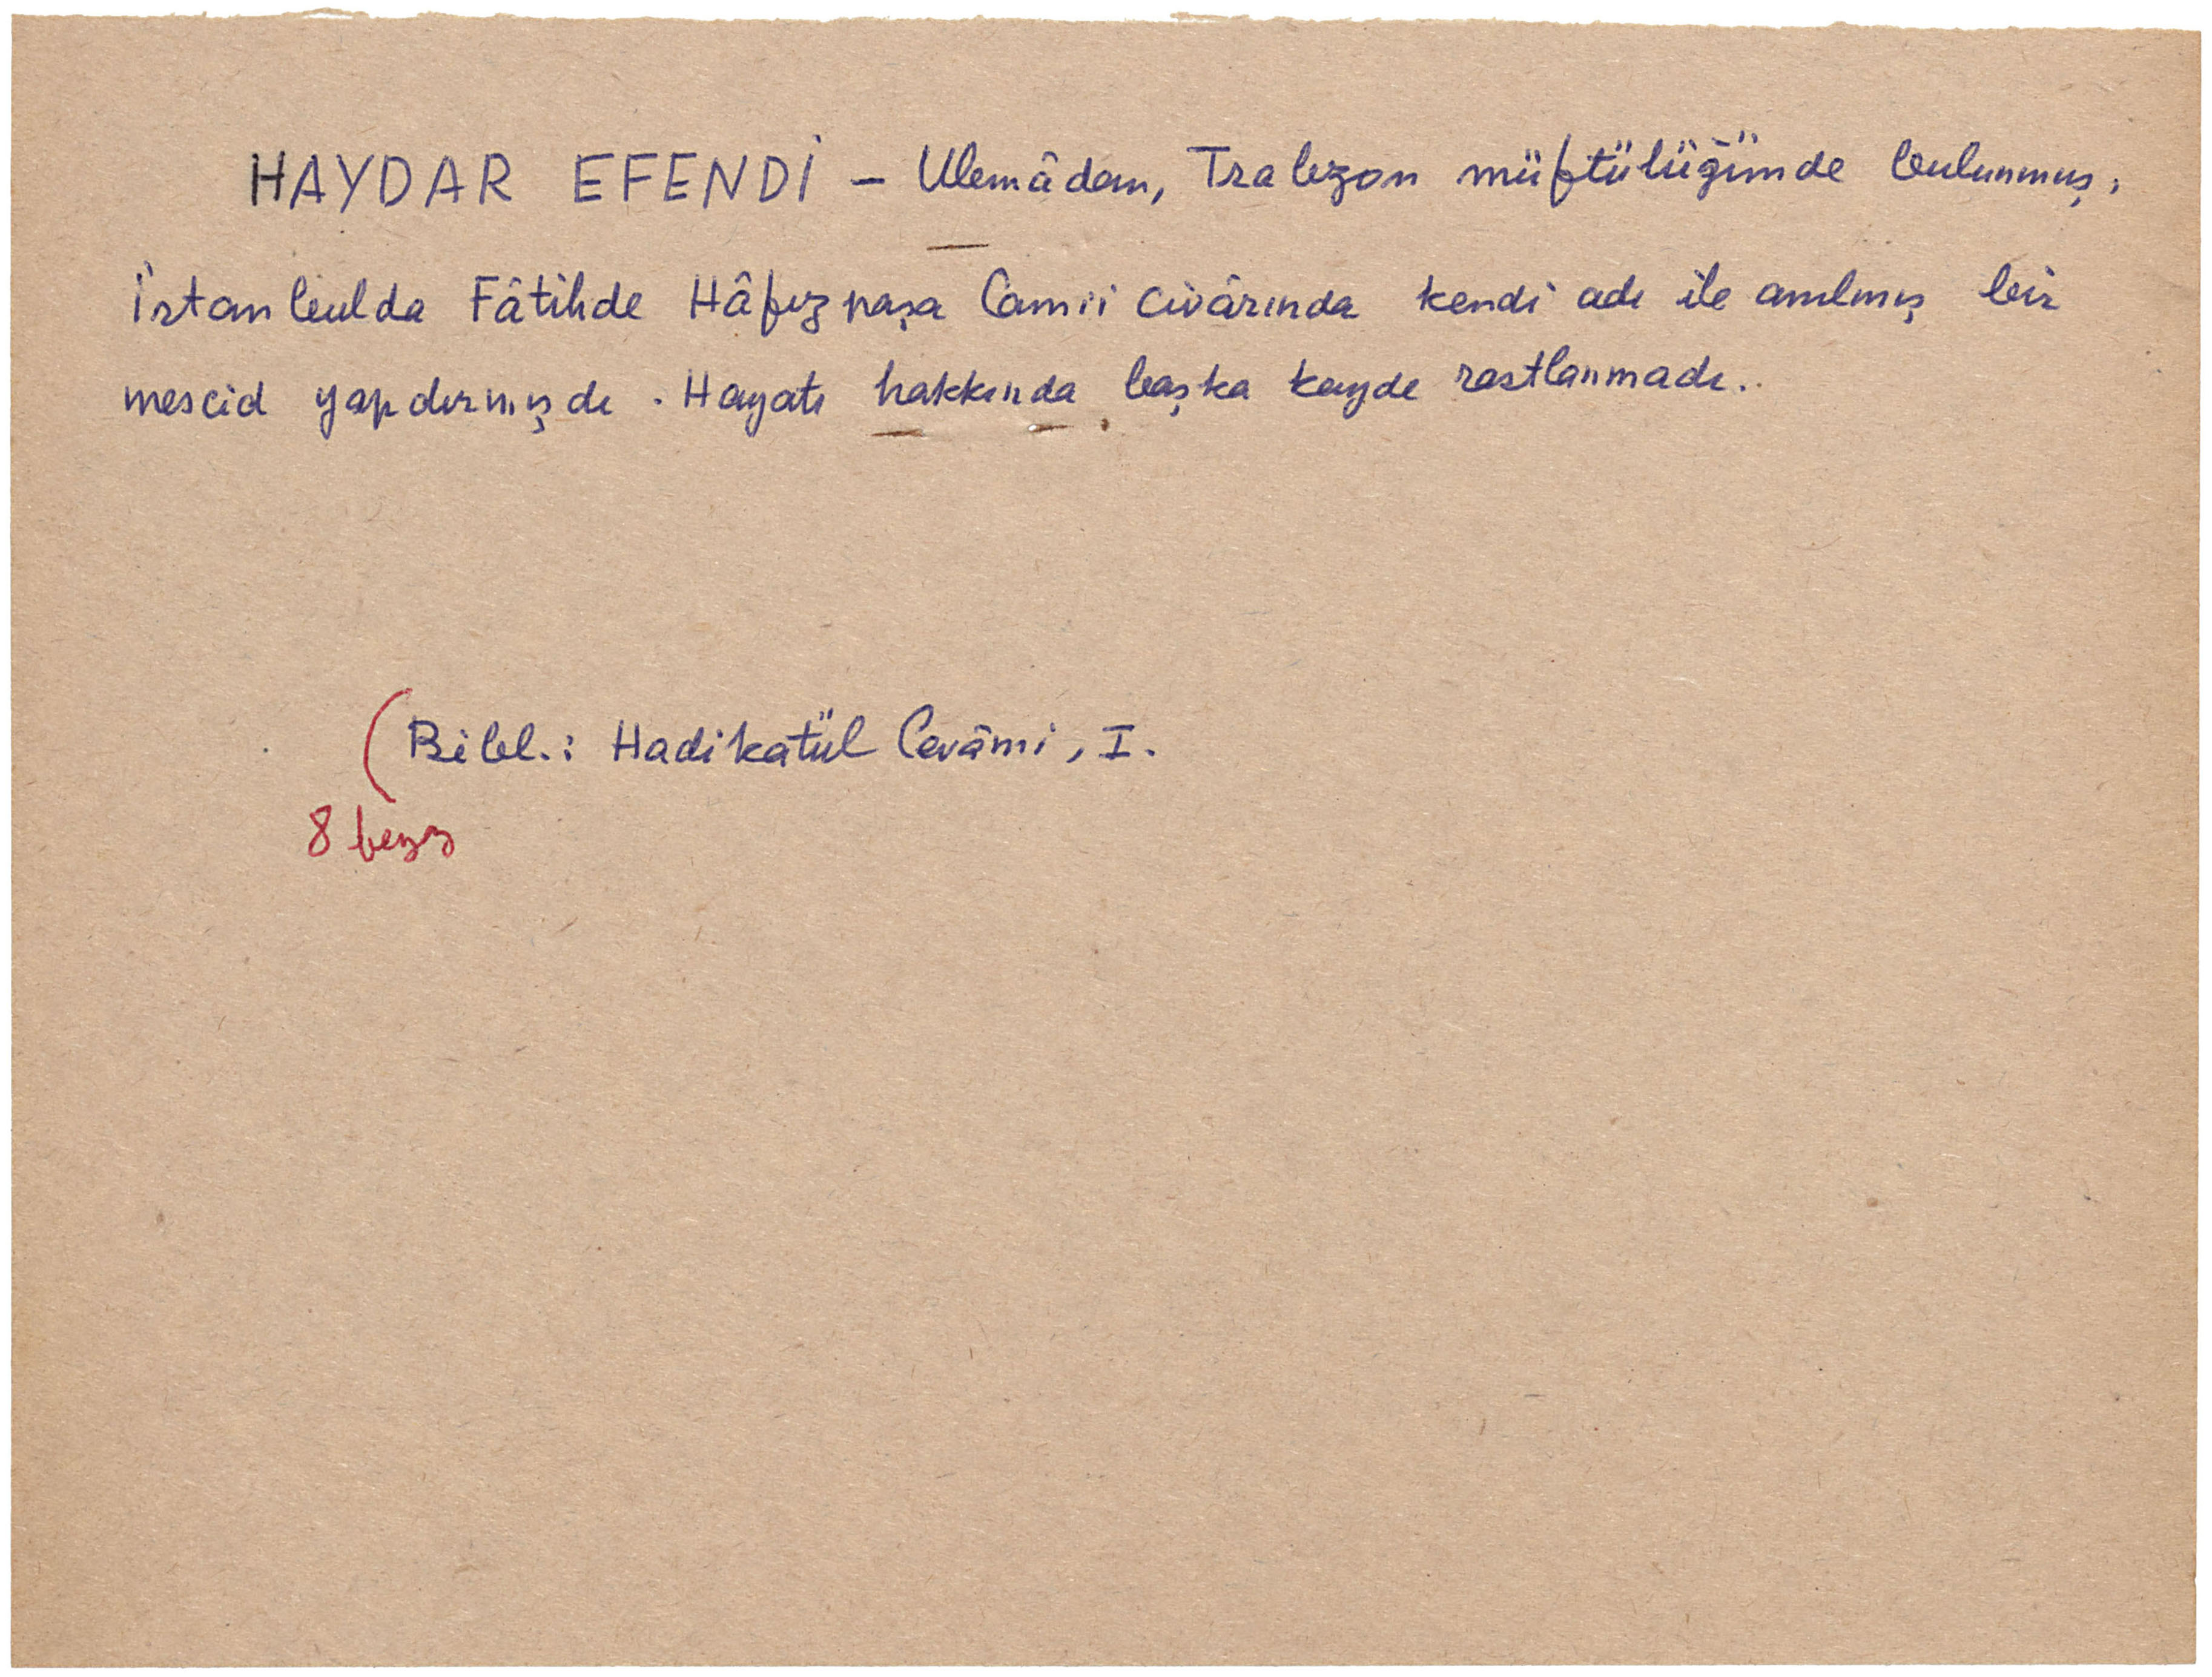 HAYDAR EFENDİ – Ulemâdan, Trabzon müftülüğünde bulunmuş,
İstanbulda Fâtihde Hâfızpaşa Camii civârında kendi adı ile anılmış bir
mescid yapdırmışdı. Hayatı hakkında başka kayde rastlanmadı.
(Bibl.: Hadikatül Cevâmi, I.
8 beyz